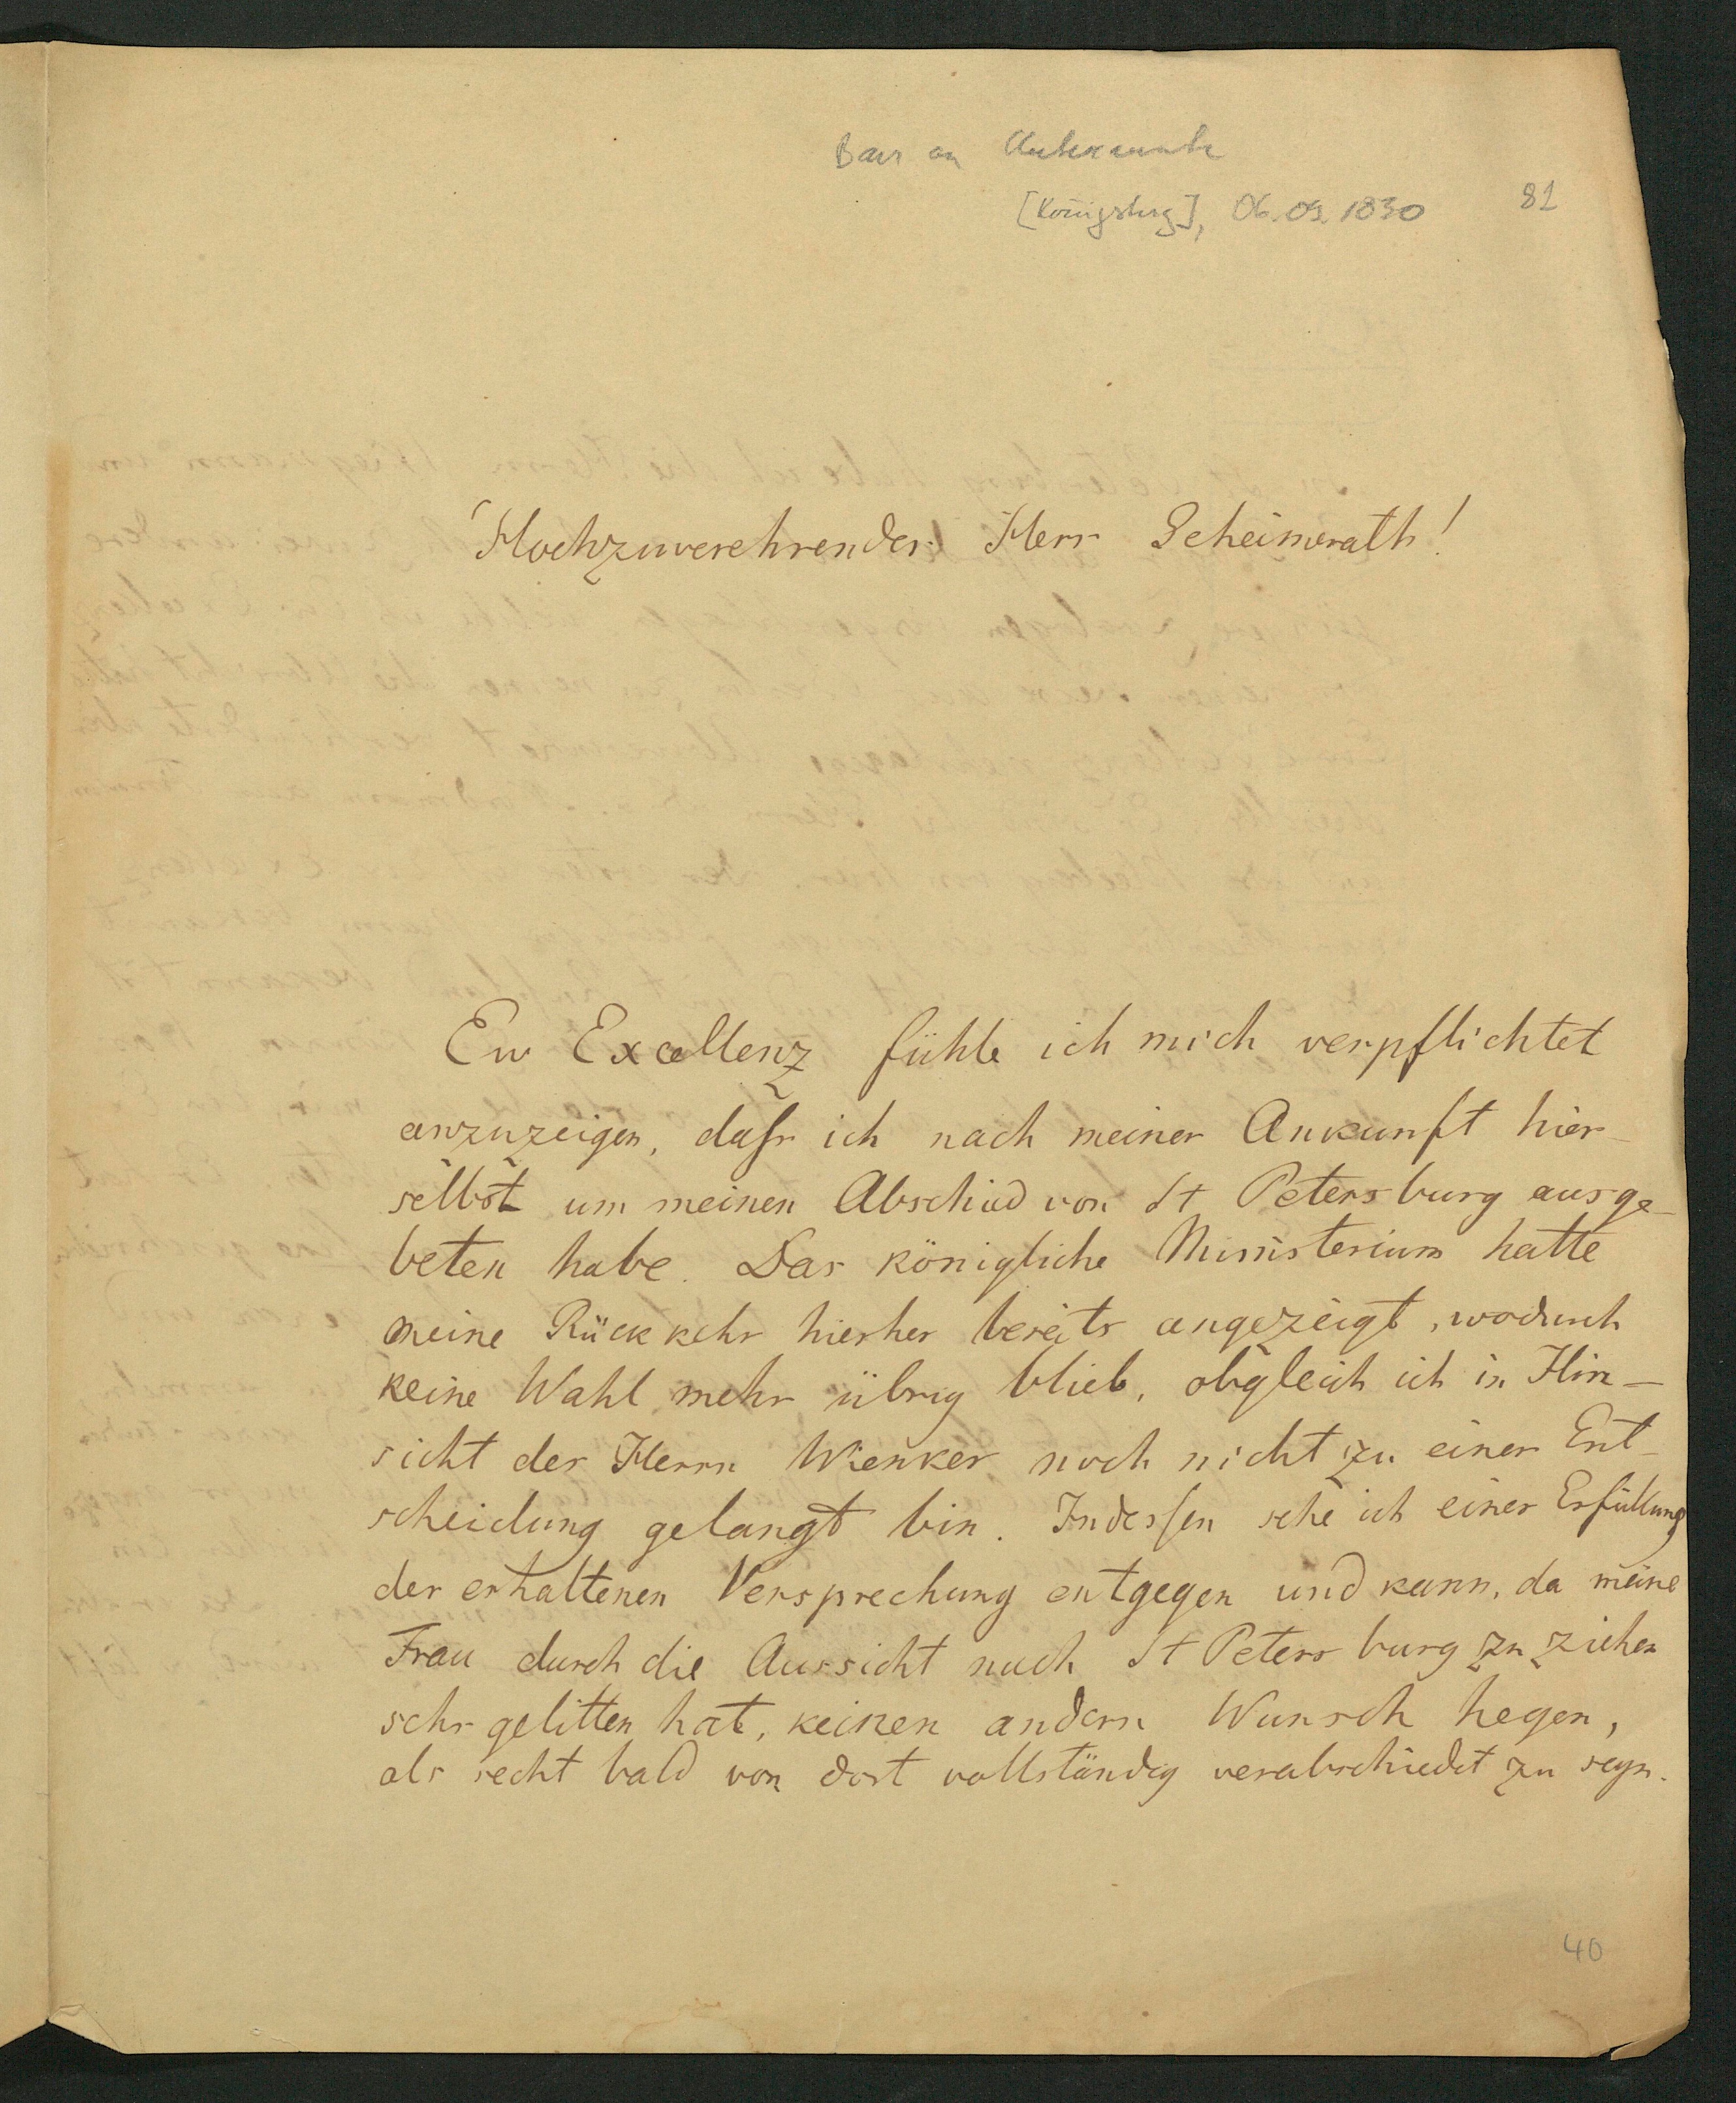 Baer an Unbekannt
[Königsberg], 06.09.1830
81
Hochzuverehrender Herr Geheimerath!
Ew Excellenz fühle ich mich verpflichtet
anzuzeigen, daſs ich nach meiner Ankunft hier-
selbst um meinen Abschied von St Petersburg ausge-
beten habe. Das königliche Ministerium hatte
meine Rückkehr hierher bereits angezeigt, wodurch
keine Wahl mehr übrig blieb, obgleich ich in Hin-
sicht der Herrn Wienker noch nicht zu einer Ent-
scheidung gelangt bin. Indeſsen sehe ich einer Erfüllung
der erhaltenen Versprechung entgegen und kann, da meine
Frau durch die Aussicht nach St Petersburg zu ziehen
sehr gelitten hat, keinen andern Wunsch hegen,
als recht bald von dort vollständig verabschiedet zu seyn.
40